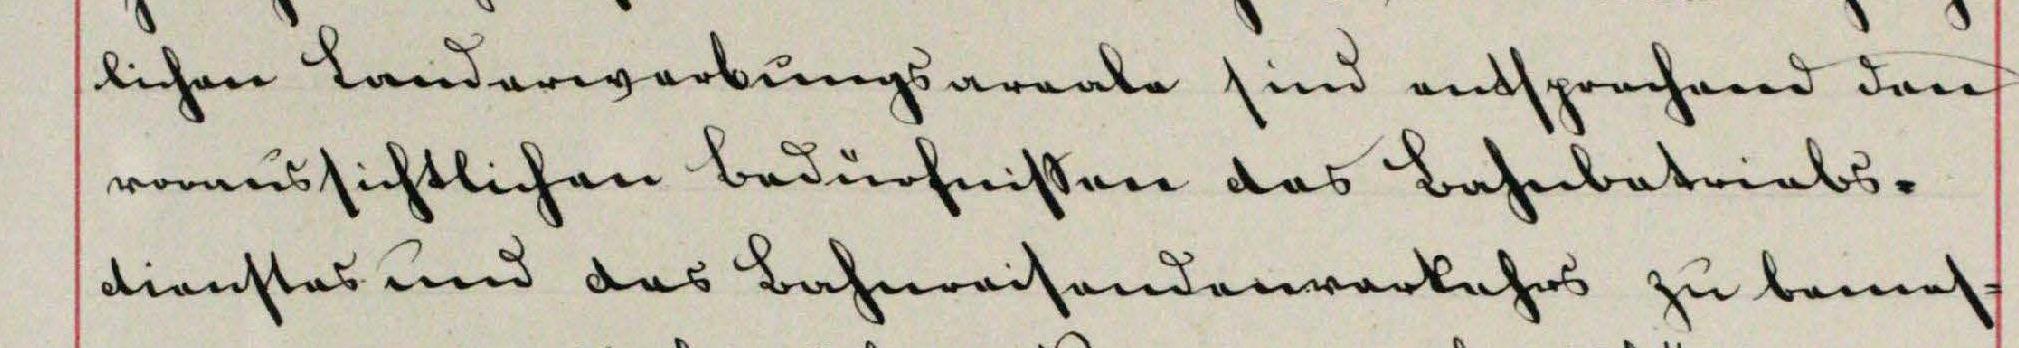 lichen Landerwerbungsareale sind entsprechend den
voraussichtlichen Bedürfnissen des Bahnbetriebs-
dienstes und des Bahnreisendenverkehrs zu bemes-